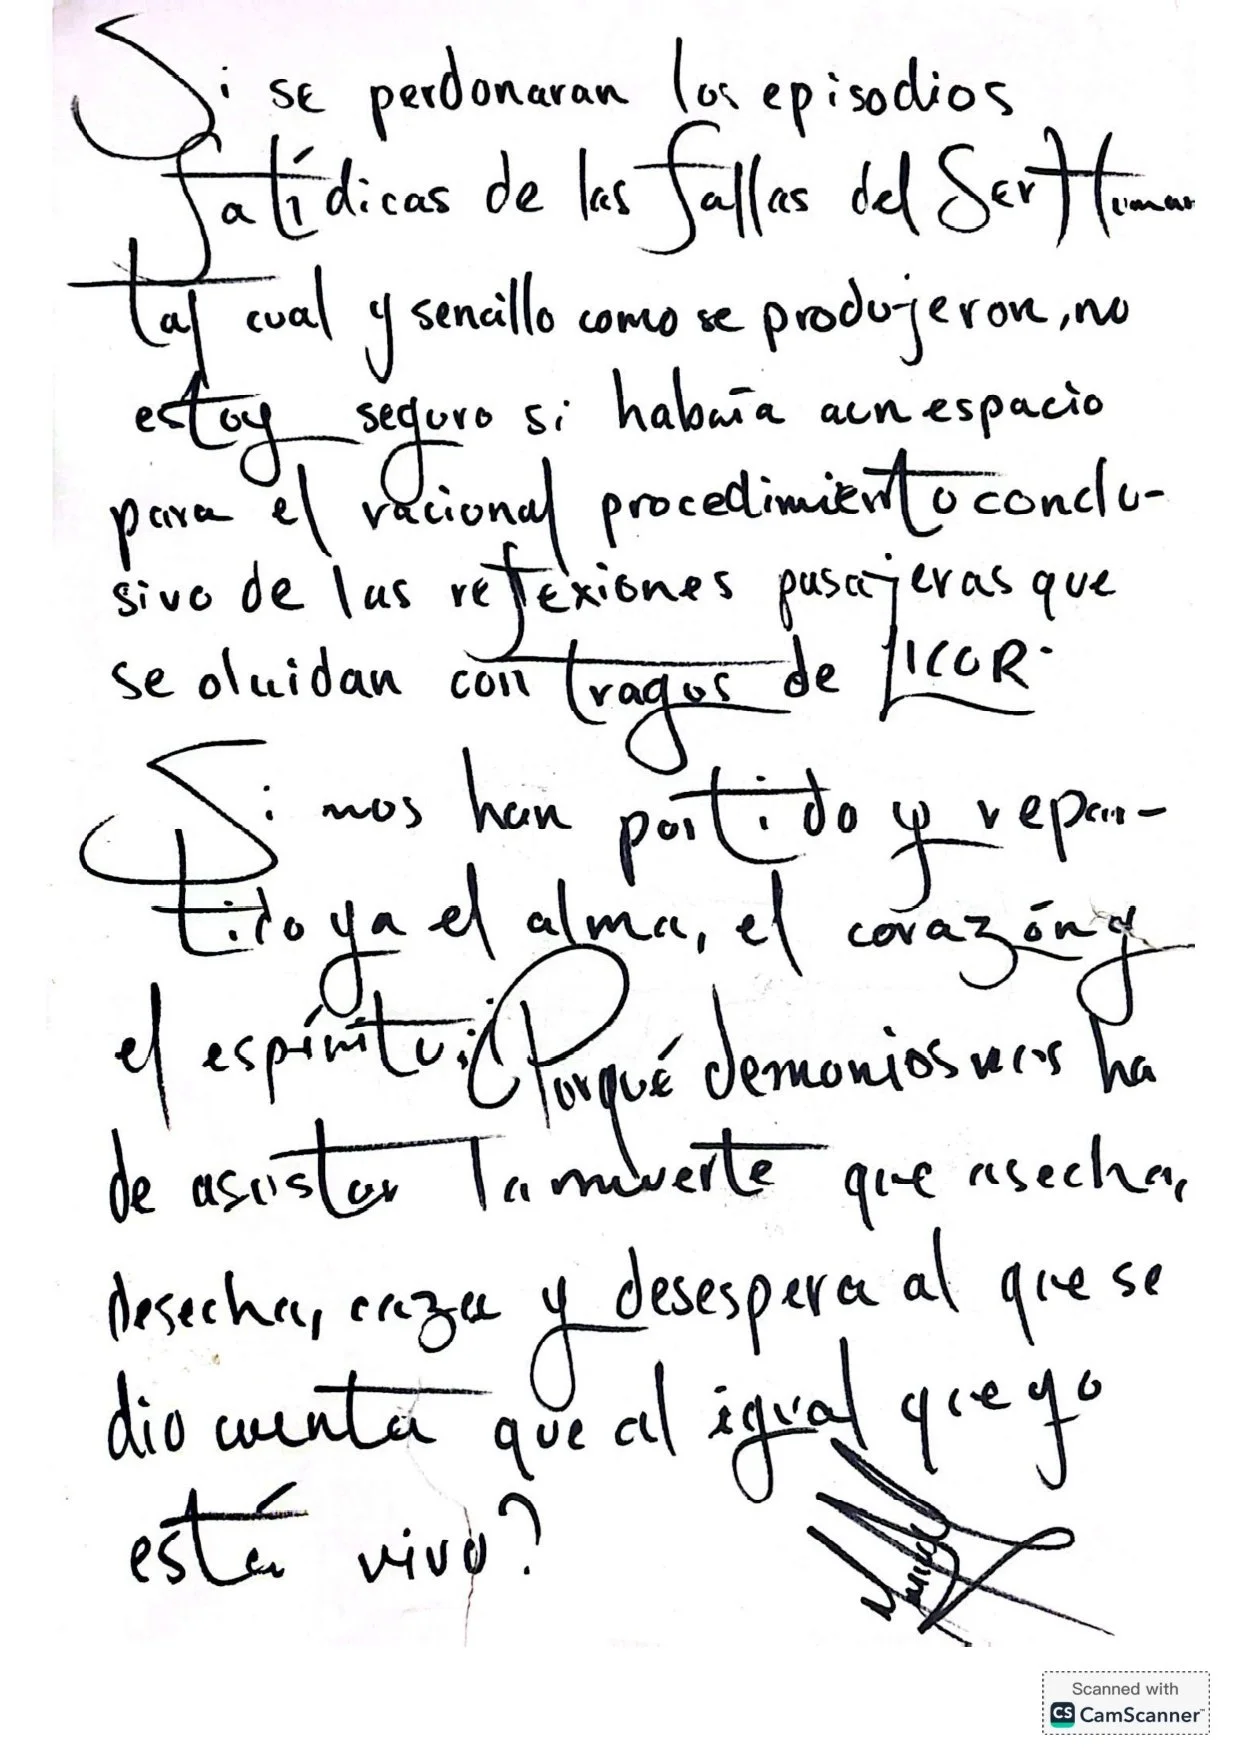 Si se perdonaran los episodios
fatídicas de las fallas del Ser Humano
tal cual y sencillo como se produjeron, no
estoy seguro si habría aun espacio
para el racional procedimiento conclu-
sivo de las reflexiones pasajeras que
se olvidan con tragos de LICOR.
Si nos han partido y repar-
tido ya el alma, el corazón y
el espíritu; ¿Porqué demonios nos ha
de asustar la muerte que asecha,
desecha, caza y desespera al que se
dio cuenta que al igual que yo
está vivo?
Scanned with
CS CamScanner